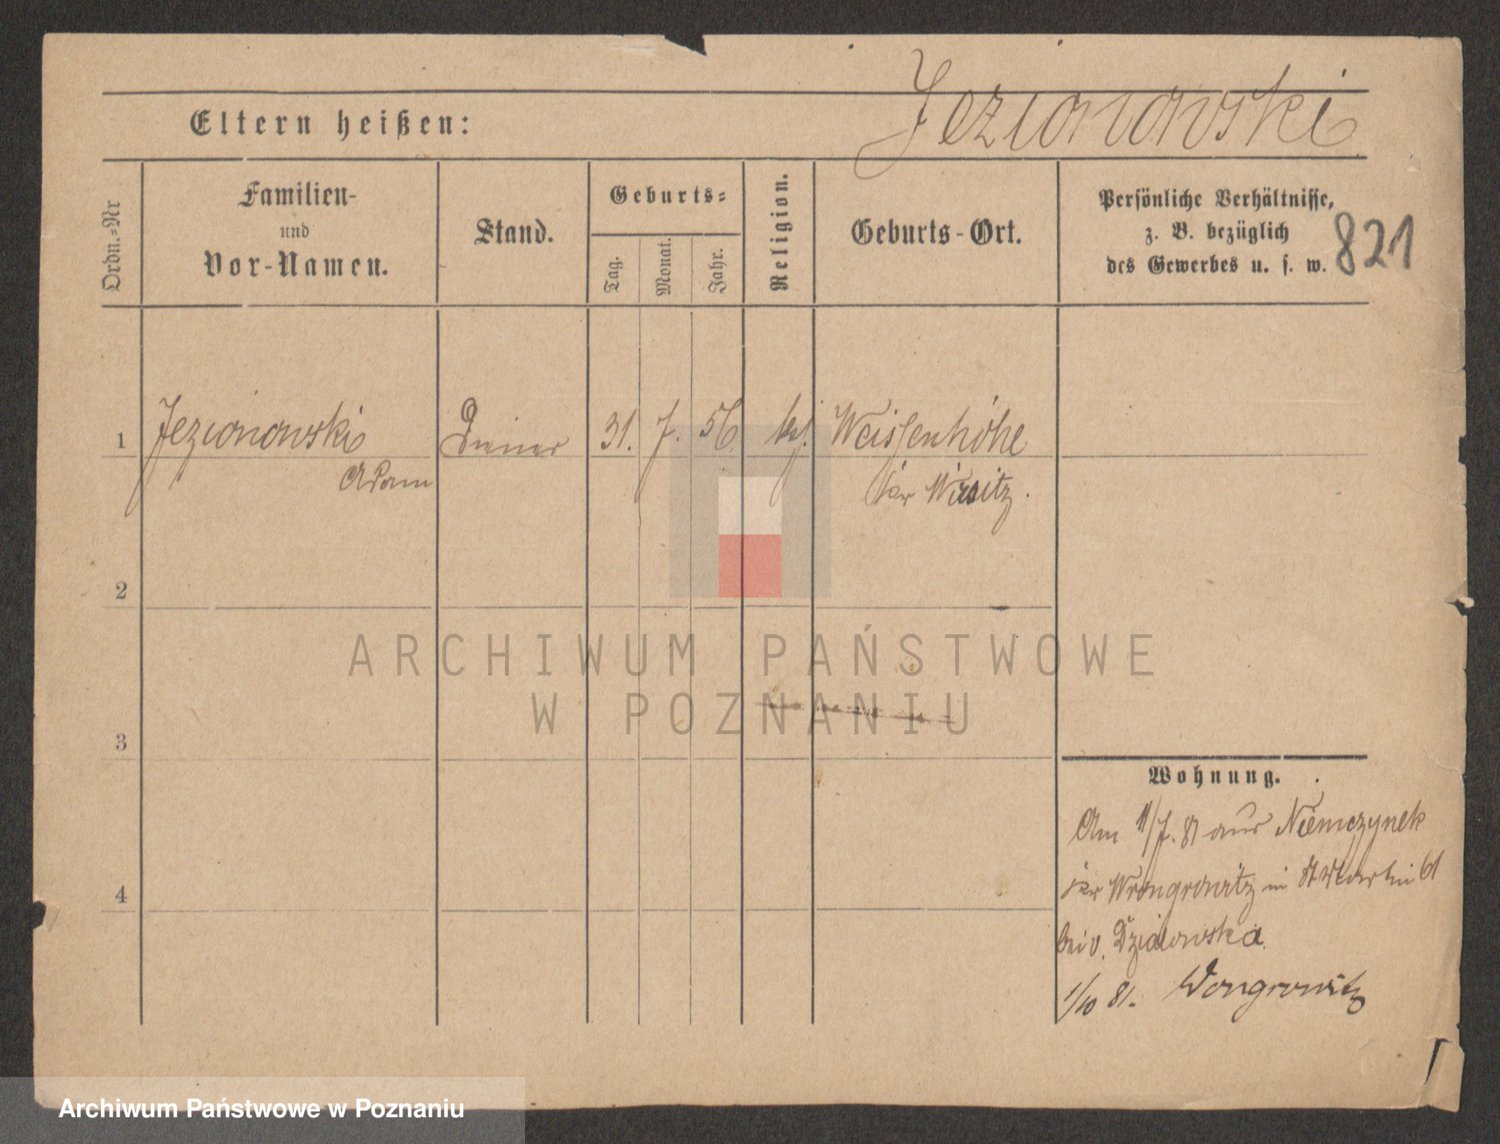 Jezionowski
Eltern heißen:
Ordn.=Nr
Familien-
und
Vor-Namen.
Stand.
Geburts=
Tag.
Monat.
Jahr.
Religion.
Geburts-Ort.
Persönliche Verhältnisse,
z. B. bezüglich
des Gewerbes u. s. w.
821
1
Jezionowski
Adam
Diener
31.
7.
56.
kat.
Weissenhöhe
Kr Wirsitz.
2
3
4
Wohnung.
Am 1/7. 81 aus Niemczynek
Kr Wrongrowitz in St Martin 61
bei v. Dzialowska
1/10 81. Wongrowitz
ARCHIWUM PAŃSTWOWE
W POZNANIU
Archiwum Państwowe w Poznaniu